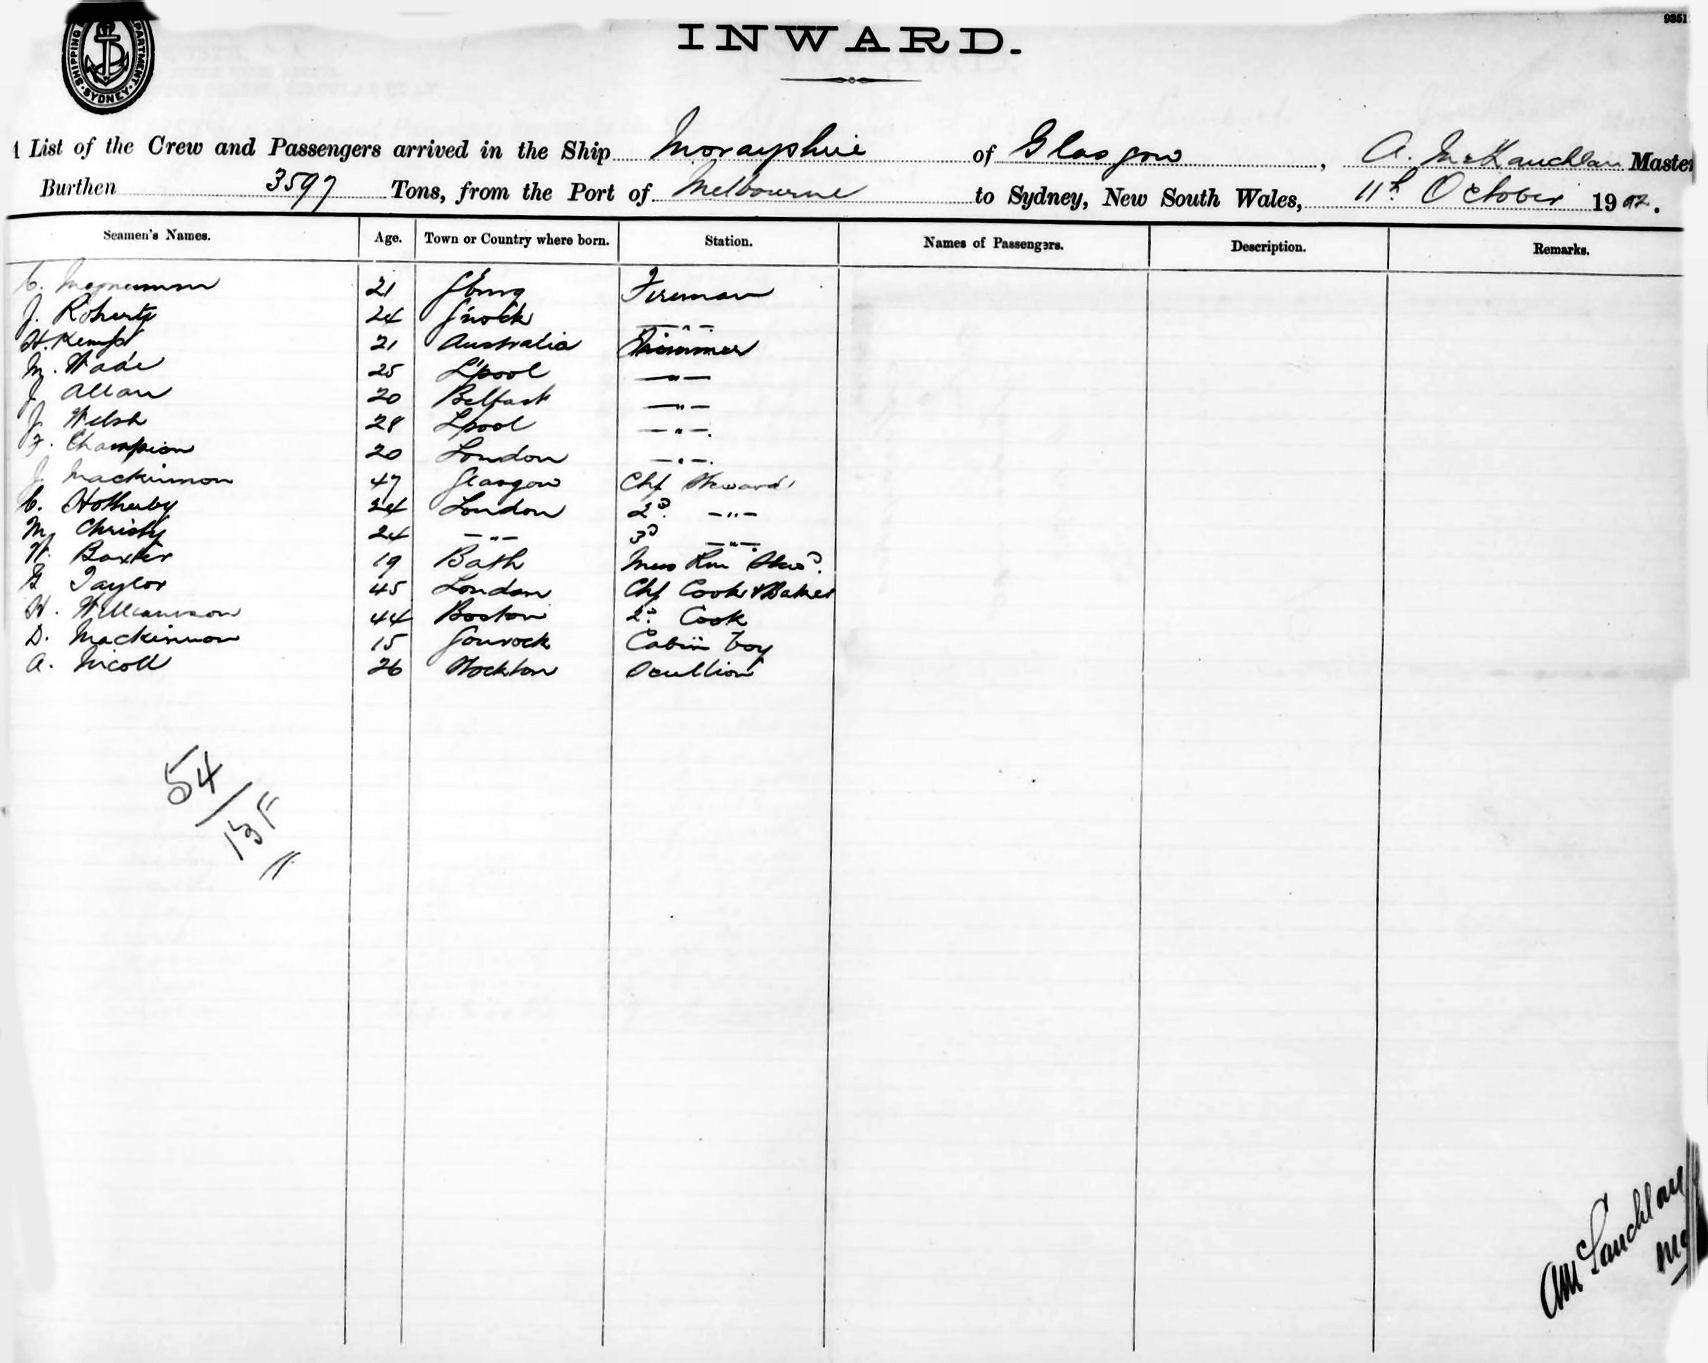 9351
SHIPPING DEPARTMENT SYDNEY
INWARD.
List of the Crew and Passengers arrived in the Ship Morayshire of Glasgow, A. McLauchlan Master
Burthen 3597 Tons, from the Port of Melbourne to Sydney, New South Wales, 11th October 1902.
Seamen's Names. Age. Town or Country where born. Station. Names of Passengers. Description. Remarks.
C. 21 Gburg Fireman
J. Roberts 24 G'nock —"—
H. Kemp 21 Australia Trimmer
M. Wade 25 L'pool —"—
J. Allan 20 Belfast —"—
J. Welsh 28 Lpool —"—
F. Champion 20 London —"—
J. Mackinnon 47 Glasgow Chf Steward
C. Hotherby 24 London 2d —"—
M. Christy 24 —"— 3d —"—
W. Baxter 19 Bath Mess Rm Stwd.
G Taylor 45 London Chf Cook & Baker
H. Williamson 44 Boston 2d Cook
D. Mackinnon 15 Gourock Cabin boy
A. Nicoll 26 Stockton Scullion
54
/
13F
AMcLauchlan